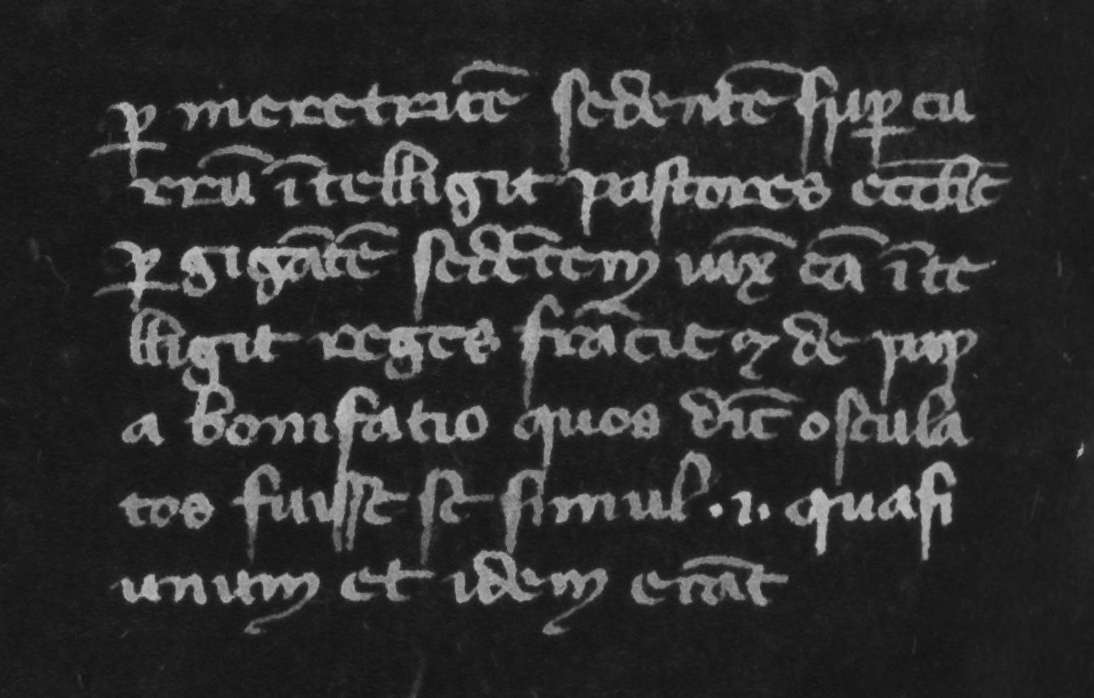 ꝑ meretricē sedentē suꝑ cu
rrū ītelligit pastores eccłie
ꝑ gigātē sedētem iux̄ eā īte
lligit reges frācie ⁊ de pap
a bonifatio quos dic̄ oscula
tos fuisse se simul .i. quasi
unum et idem erāt